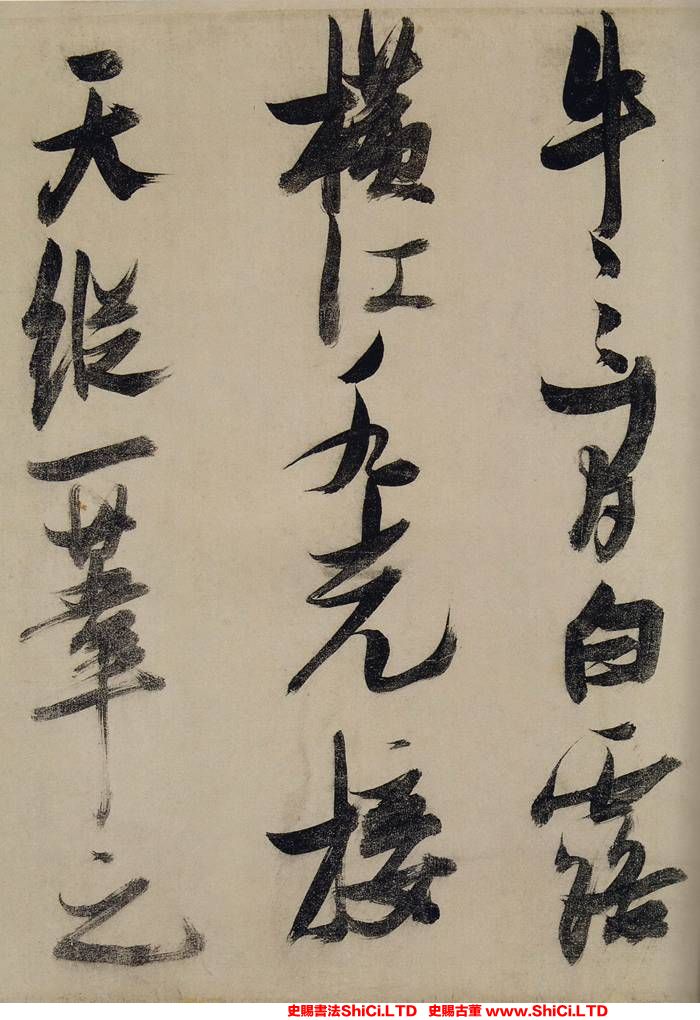 牛之間白露
橫江水光接
天縱一葦之
史賜書法ShiCi.LTD 史賜古董 www.ShiCi.LTD